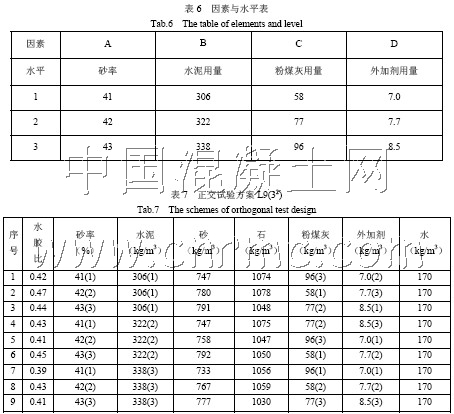 表 6 因素与水平表
Tab.6 The table of elements and level
因素 A B C D
水平 砂率 水泥用量 粉煤灰用量 外加剂用量
1 41 306 58 7.0
2 42 322 77 7.7
3 43 338 96 8.5
中国混凝土网
表 7 正交试验方案 L9(3⁴)
Tab.7 The schemes of orthogonal test design
序号 水胶比 砂率(%) 水泥(kg/m³) 砂(kg/m³) 石(kg/m³) 粉煤灰(kg/m³) 外加剂(kg/m³) 水(kg/m³)
1 0.42 41(1) 306(1) 747 1074 96(3) 7.0(2) 170
2 0.47 42(2) 306(1) 780 1078 58(1) 7.7(3) 170
3 0.44 43(3) 306(1) 791 1048 77(2) 8.5(1) 170
4 0.43 41(1) 322(2) 747 1075 77(2) 8.5(3) 170
5 0.41 42(2) 322(2) 758 1047 96(3) 7.0(1) 170
6 0.45 43(3) 322(2) 792 1050 58(1) 7.7(2) 170
7 0.39 41(1) 338(3) 733 1056 96(1) 7.0(1) 170
8 0.43 42(2) 338(3) 767 1059 58(2) 7.7(2) 170
9 0.41 43(3) 338(3) 777 1030 77(3) 8.5(3) 170